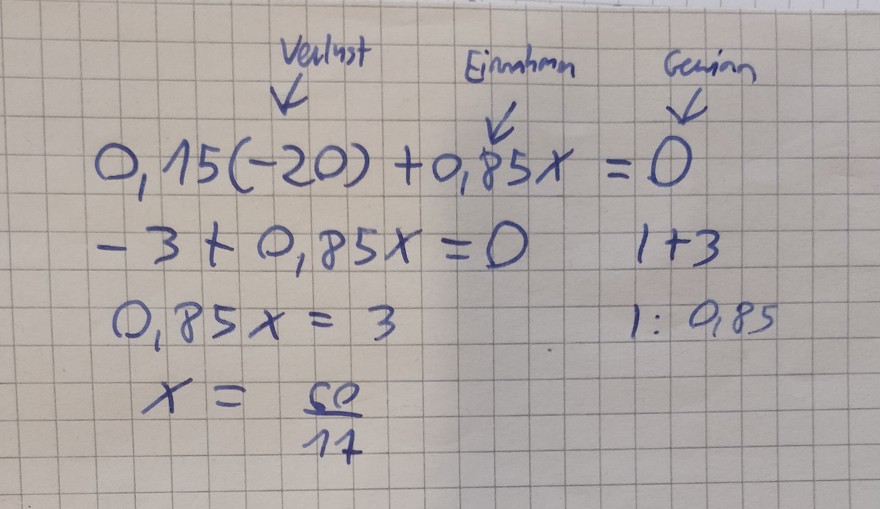 Verlust Einnahmen Gewinn
0,15(-20) + 0,85x = 0
- 3 + 0,85x = 0 | +3
0,85x = 3 | : 0,85
x = 60/17